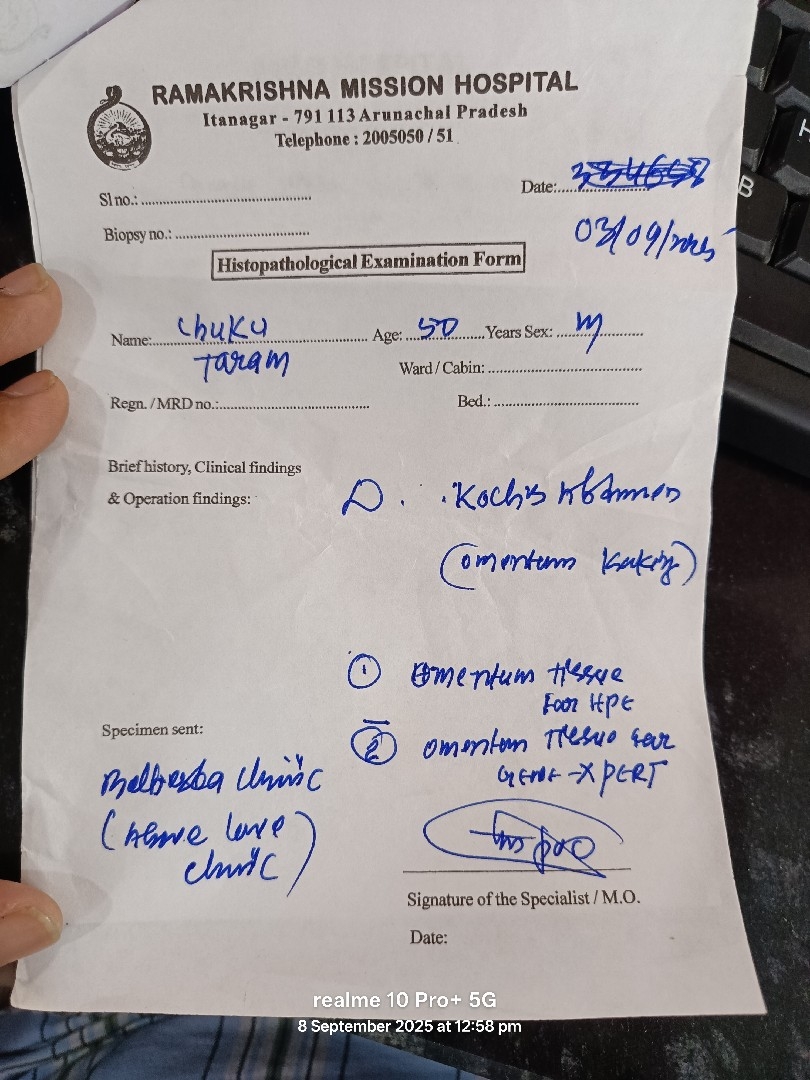 RAMAKRISHNA MISSION HOSPITAL
Itanagar - 791 113 Arunachal Pradesh
Telephone : 2005050 / 51
Sl no.:
Date:
Biopsy no.:
03/09/2025
Histopathological Examination Form
Name: Chuku Age: 50 Years Sex: M
Taram
Ward / Cabin:
Regn. / MRD no.:
Bed.:
Brief history, Clinical findings
& Operation findings:
D. Koch's Abdomen
(omentum
① omentum tissue
For HPE
Specimen sent:
② omentum tissue for
GENE-XPERT
clinic
(Above Love
clinic)
Signature of the Specialist / M.O.
Date:
realme 10 Pro+ 5G
8 September 2025 at 12:58 pm